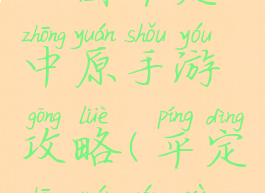 zhōng yuán shǒu yóu
中原手游
gōng lüè píng dìng
攻略(平定